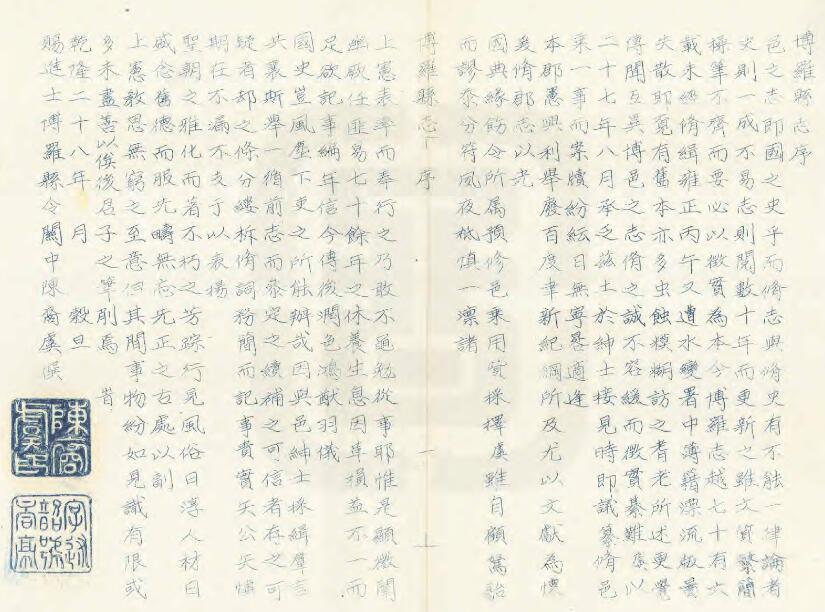 博羅縣志序
邑之志即國之史乎而脩志與脩史有不能一律論者
史則一成不易志則閱數十年而更新之雖文質繁簡
操筆不齊而要必以徵實為本今博羅志越七十有六
載未經脩緝雍正丙午又遭水變署中薄籍漂流版
失散耶覓有舊本亦多虫蝕糢糊訪之耆老所述更覺
傳聞互異博邑之志脩之誠不容緩而徵實綦難虞以
二十七年八月承乏茲土於紳士接見時即議纂脩邑
乘一事而案牘紛紜日無寧晷適逢
本郡憲興利舉廢百度聿新紀綱所及尤以文獻為懷
爰脩郡志以光
國典緣飭令所属預修邑乘用資採擇虞雖自顧駑駘
而謬忝分符夙夜祗慎一凛諸
博羅縣志 序 一
上憲表率而奉行之乃敢不黽勉從事耶惟是顯微闡
幽厥任匪易七十餘年之休養生息因革損益不一而
足欲記事編年信今傳後潤色鴻猷羽儀
國史豈風塵下吏之所能辦哉因與邑紳士採緝羣言
共襄斯舉一循前志而叅定之續補之可信者存之可
疑者却之條分縷柝脩詞務簡而記事貴實矢公矢慎
期在不漏不支于以表揚
聖朝之雅化而著不朽之芳踪行見風俗日淳人材日
盛念舊德而服先疇無忘先正之右處以訓
上憲教思無窮之至意但其間事物紛如見識有限或
多未盡善以俟後君子之筆削焉 旹
乾隆二十八年 月 穀旦
賜進士博羅縣令關中陳裔虞
陳裔虞印
字